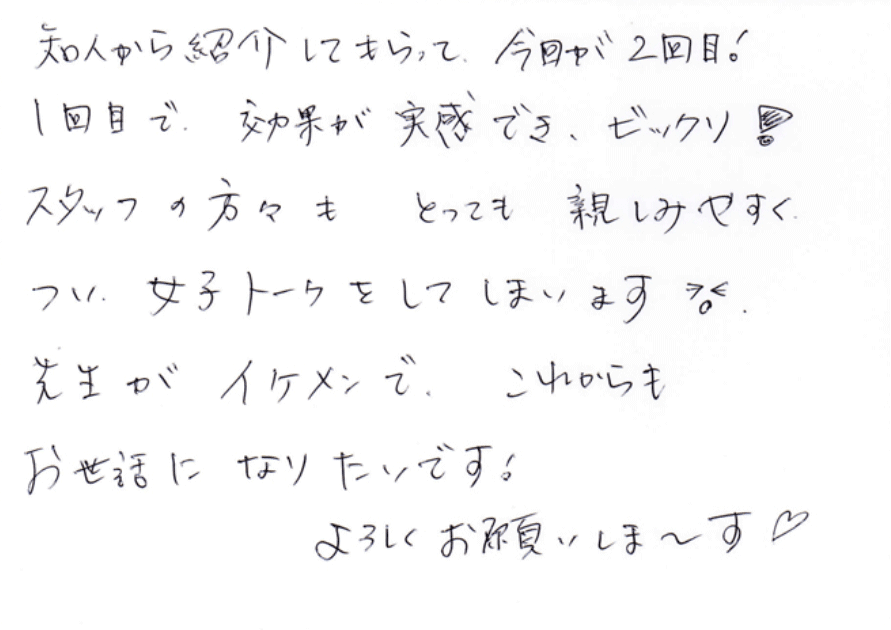 知人から紹介してもらって、今回が2回目!
1回目で、効果が実感でき、ビックリ!
スタッフの方々も とっても 親しみやすく、
つい、女子トークをしてしまいます >o<.
先生がイケメンで、これからも
お世話になりたいです!
よろしくお願いしま〜す♡